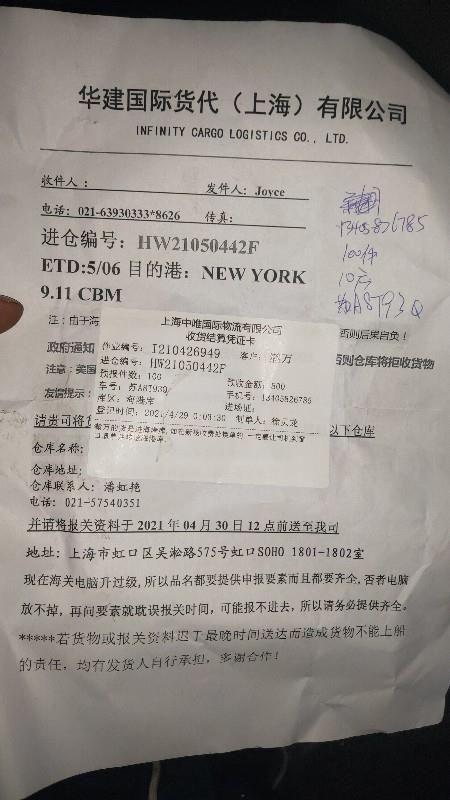 华建国际货代（上海）有限公司
INFINITY CARGO LOGISTICS CO., LTD.
收件人： 发件人：Joyce
电话：021-63930333*8626 传真：
100件
进仓编号：HW21050442F
ETD:5/06 目的港：NEW YORK
9.11 CBM
注：由于海 否则后果自负！
上海中唯国际物流有限公司
收货结算凭证卡
政府通知 否则仓库将拒收货物
作业编号：I210426949 客户：瀚万
进仓编号：HW21050442F
注意：美国
预报件数：100 预收金额：500
车号：苏A8T93Q 手机号：13405826785
友情提示：
库区： 进场证：
登记时间：2021/4/29 0:03:30 制单人：徐云龙
请贵司将 以下仓库
仓库名称：
仓库地址：
仓库联系人：潘虹艳
电话：021-57540351
并请将报关资料于 2021 年 04 月 30 日 12 点前送至我司
地址：上海市虹口区吴淞路575号虹口SOHO 1801-1802室
现在海关电脑升过级,所以品名都要提供申报要素而且都要齐全,否者电脑
放不掉，再问要素就耽误报关时间，可能报不进去，所以请务必提供齐全。
*****若货物或报关资料迟于最晚时间送达而造成货物不能上船
的责任，均有发货人自行承担，多谢合作！